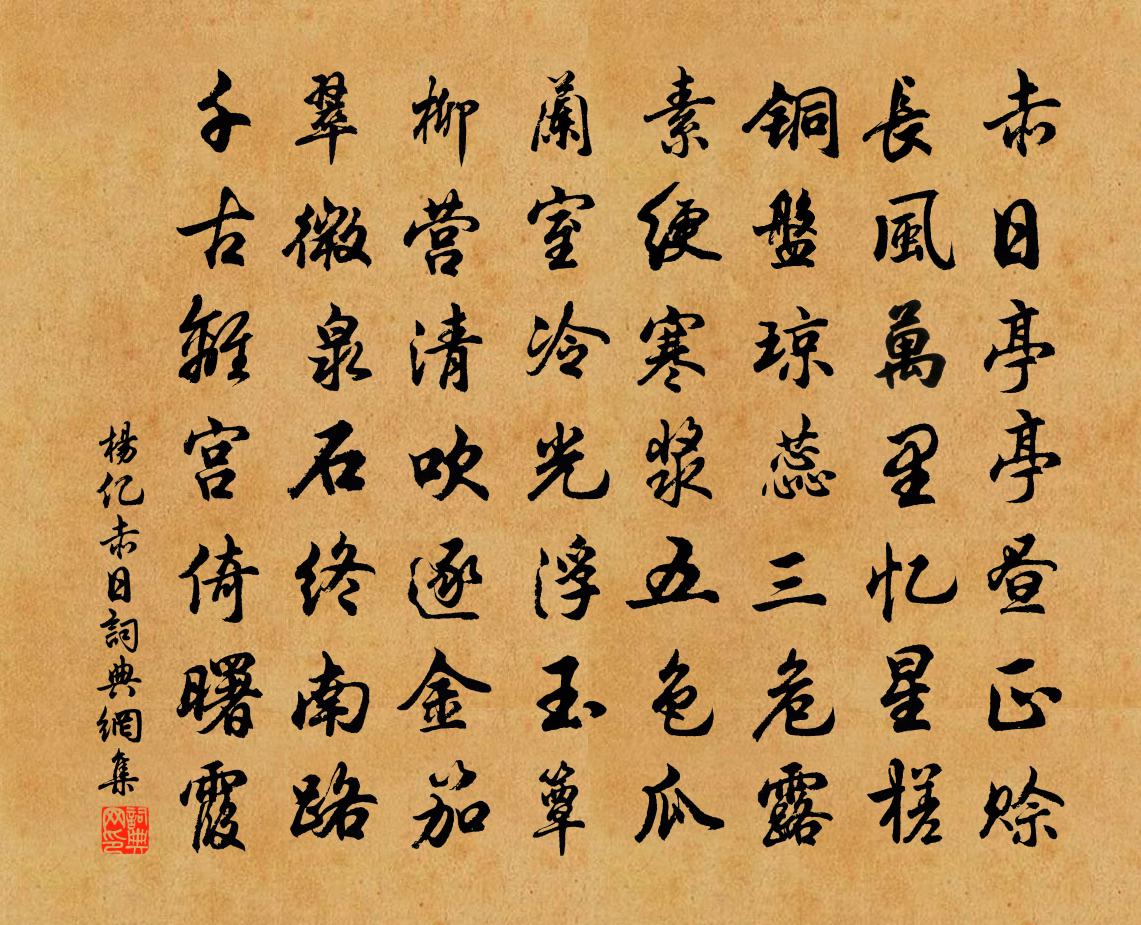 赤日亭亭昼正赊
長風萬里忆星槎
銅盤琼蕊三危露
素绠寒漿五色瓜
蘭室冷光浮玉簟
柳营清吹逐金笳
翠微泉石终南路
千古離宫倚曙霞
楊亿赤日詞典網集
詞典网印